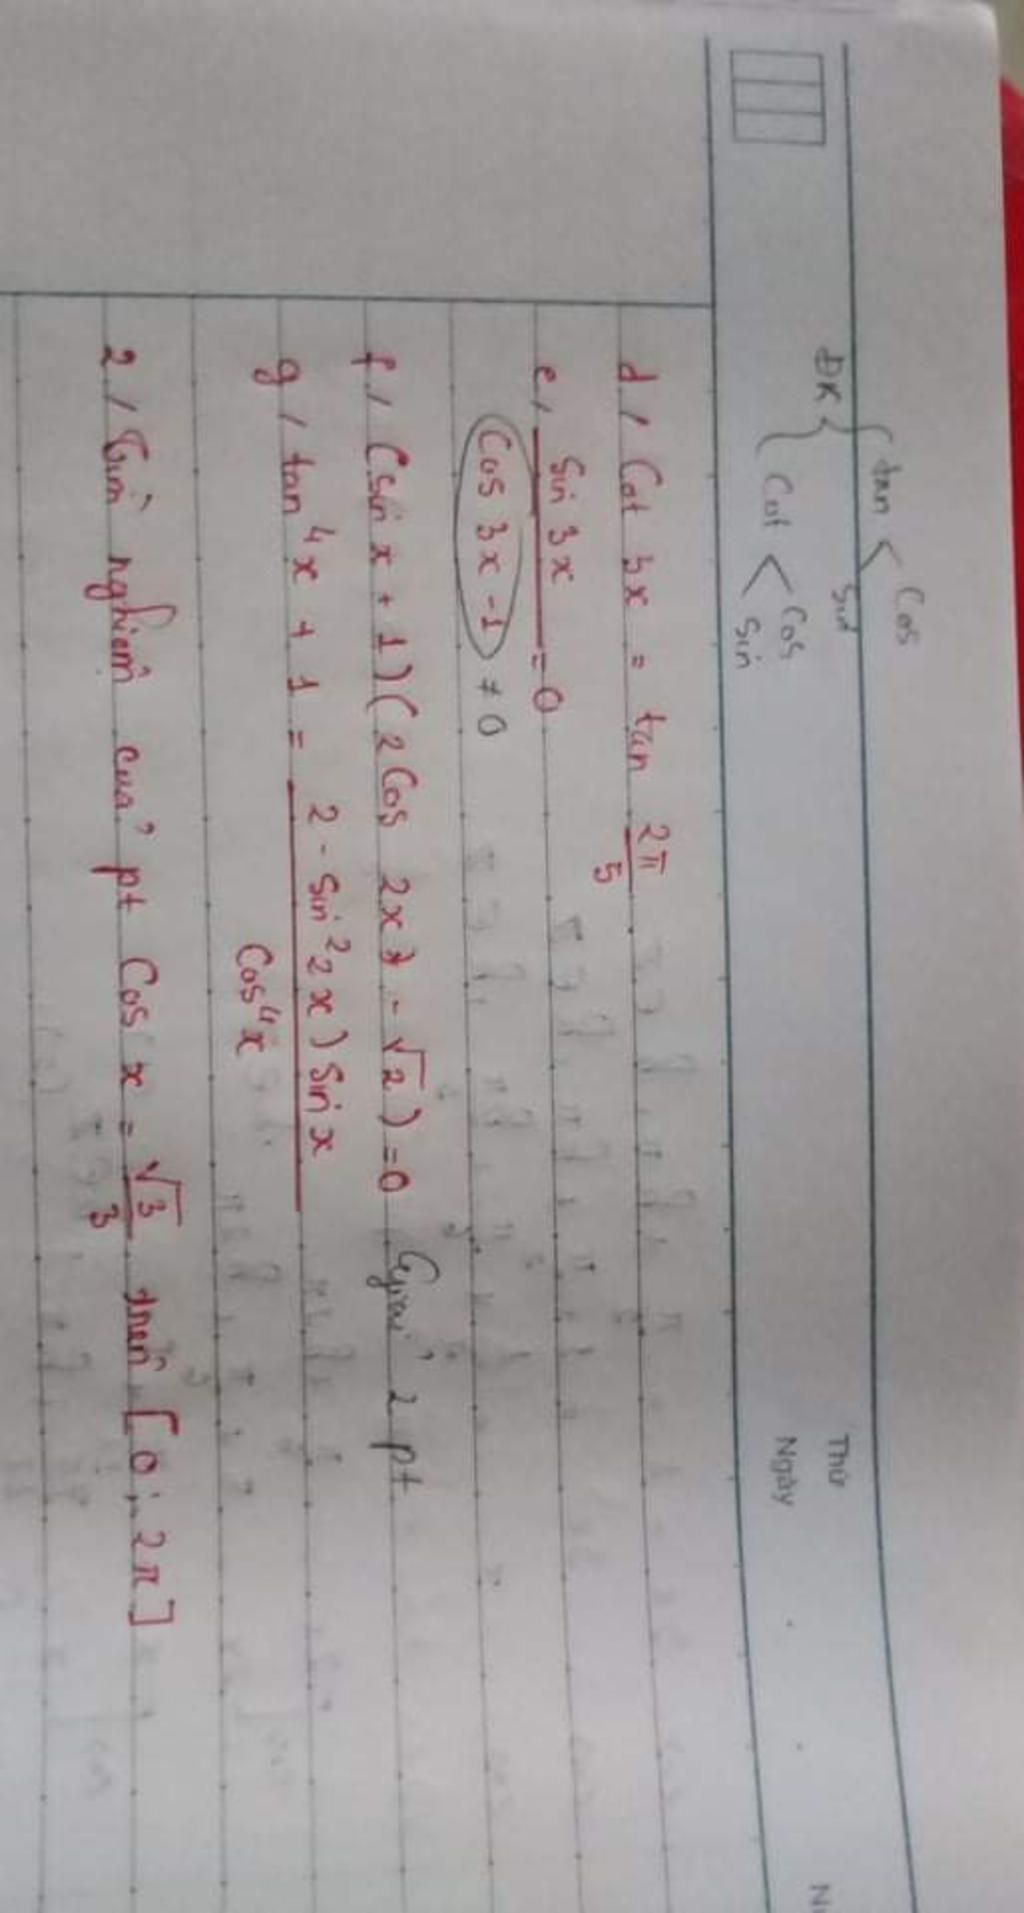 tan < Cos
Sin
ĐK {
Cot < Cos
Sin
Thứ
Ngày
d / Cot 3x = tan 2π/5
e, Sin 3x / Cos 3x - 1 = 0
≠ 0
f, (sin x + 1)(2 Cos 2x - √2) = 0 Giải 2 pt
g / tan⁴x + 1 = 2 - Sin²2x) Sin x / Cos⁴x
2 / Tìm nghiệm của pt Cos x = √3/3 trên [0; 2π]